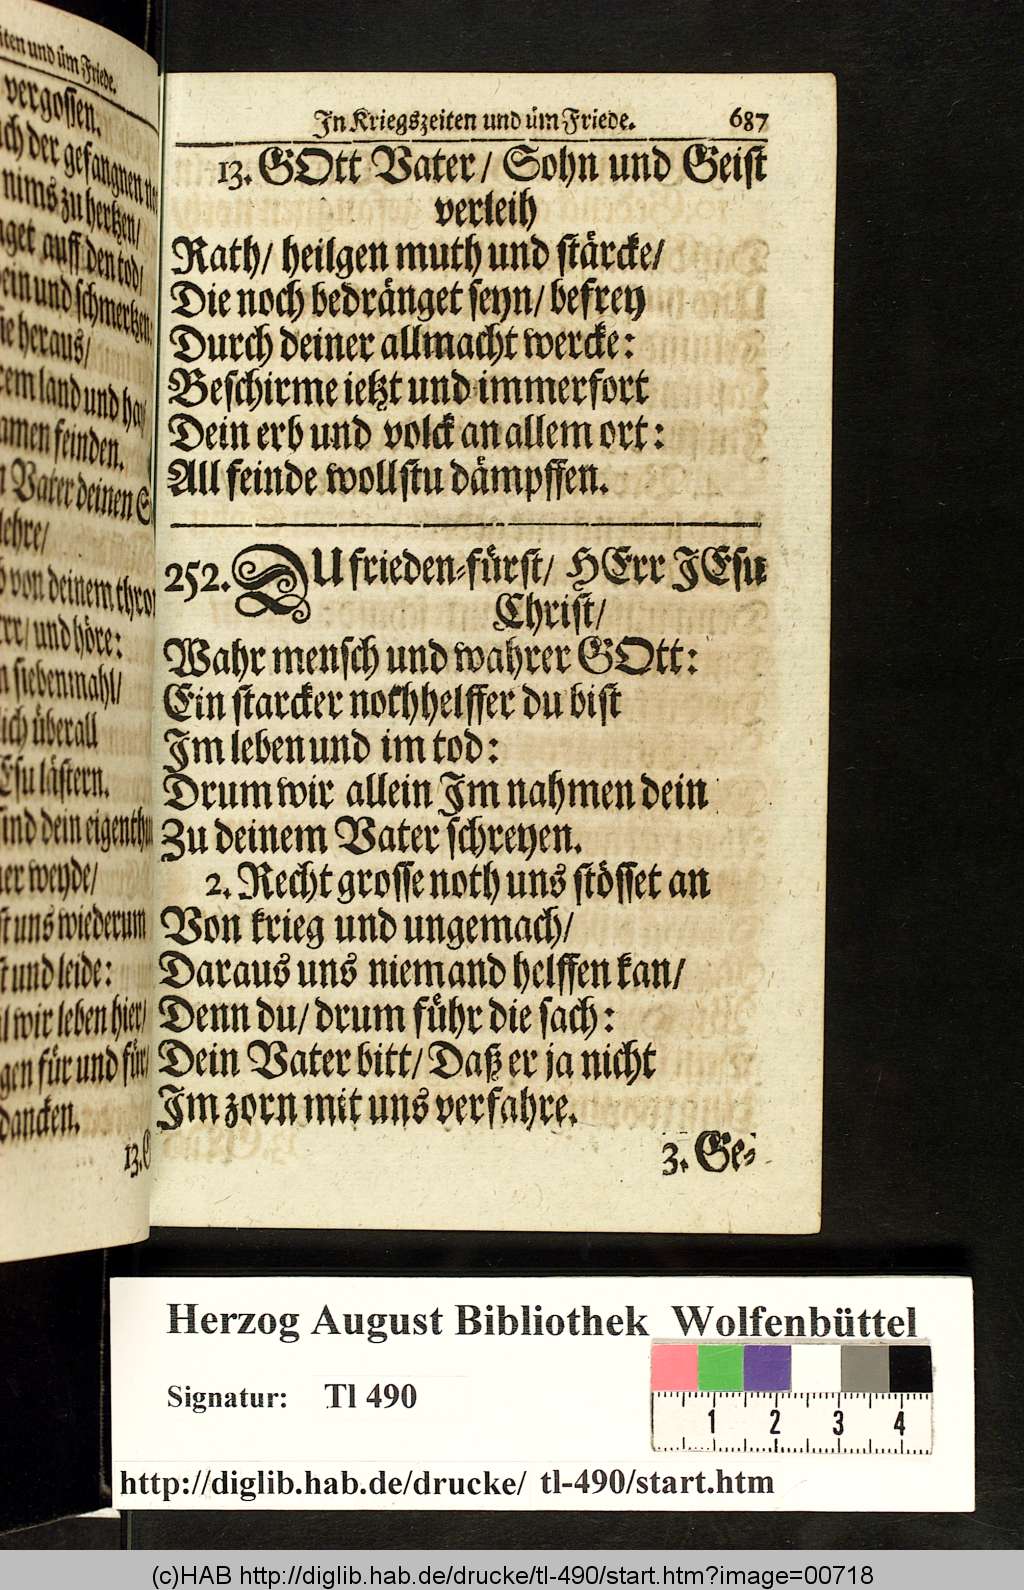 iten und üm Friede.
vergossen.
ch der gefangnen
nims zu hertzen/
get auff den tod/
ein und schmertzen
ie heraus/
rem land und
amen feinden.
Vater deinen
lehre/
von deinem
rr/ und höre:
siebenmahl/
lich überall
Esu lästern.
sind dein
er weyde/
st uns wiederum
st und leide:
wir leben hier/
gen für und für/
dancken.
13. G
In Kriegszeiten und üm Friede. 687
13. GOtt Vater/ Sohn und Geist
verleih
Rath/ heilgen muth und stärcke/
Die noch bedränget seyn/ befrey
Durch deiner allmacht wercke:
Beschirme ietzt und immerfort
Dein erb und volck an allem ort:
All feinde wollstu dämpffen.
252. DU frieden-fürst/ HErr JEsu
Christ/
Wahr mensch und wahrer GOtt:
Ein starcker nothhelffer du bist
Im leben und im tod:
Drum wir allein Im nahmen dein
Zu deinem Vater schreyen.
2. Recht grosse noth uns stösset an
Von krieg und ungemach/
Daraus uns niemand helffen kan/
Denn du/ drum führ die sach:
Dein Vater bitt/ Daß er ja nicht
Im zorn mit uns verfahre.
3. Ge-
Herzog August Bibliothek Wolfenbüttel
Signatur: Tl 490
1 2 3 4
http://diglib.hab.de/drucke/ tl-490/start.htm
(c)HAB http://diglib.hab.de/drucke/tl-490/start.htm?image=00718